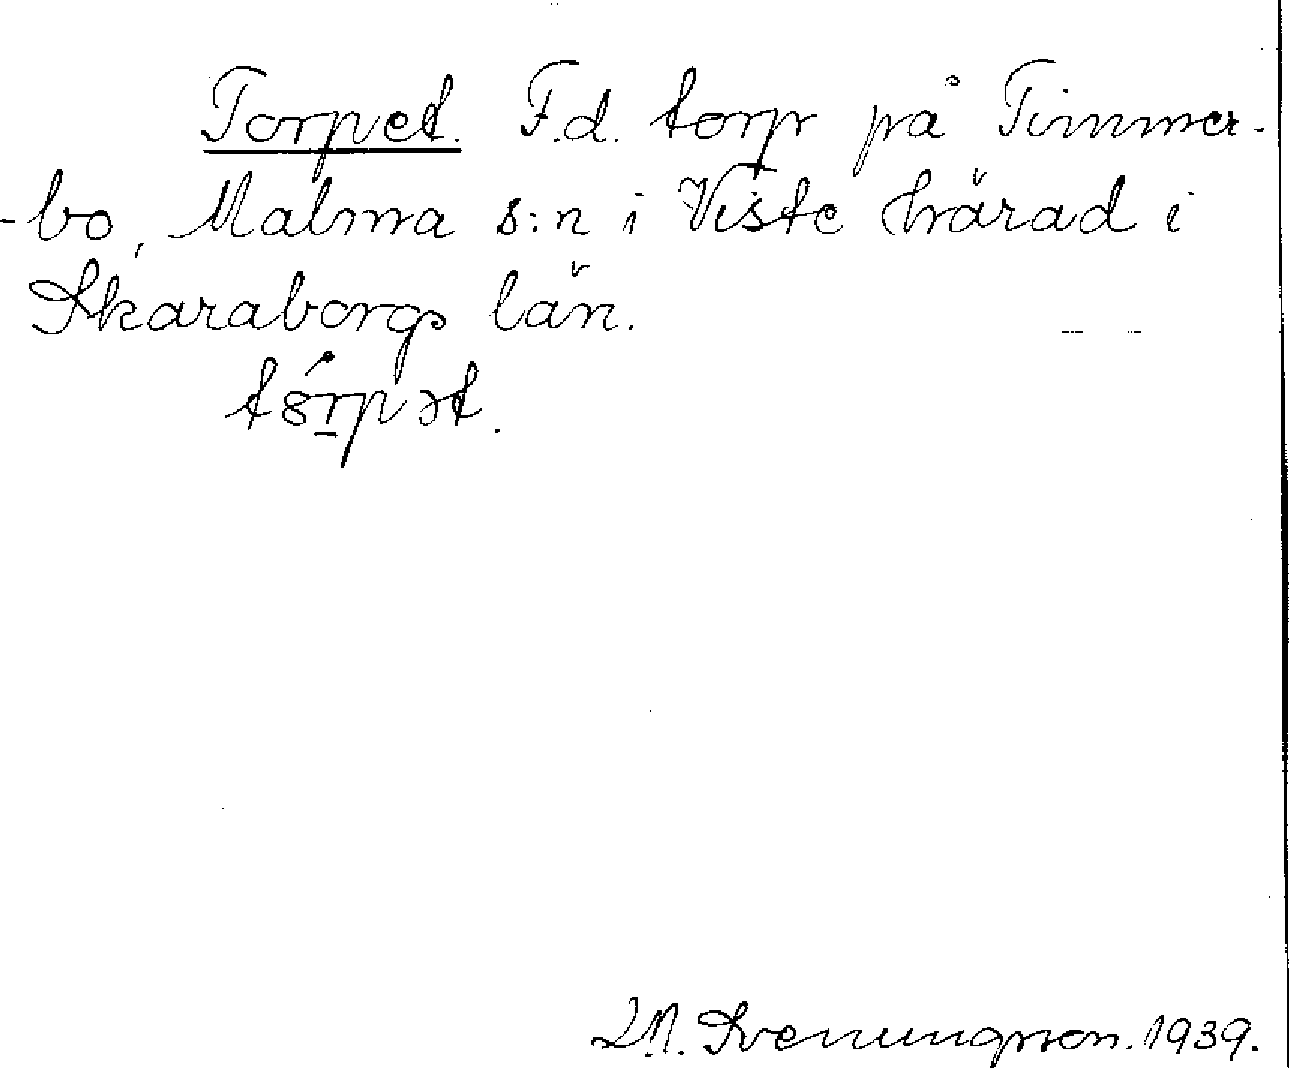 Torpet. F.d. torp på Timmer-
-bo, Malma s:n i Viste härad i
Skaraborgs län.
tȣ́rpət.
Svenungsson. 1939.